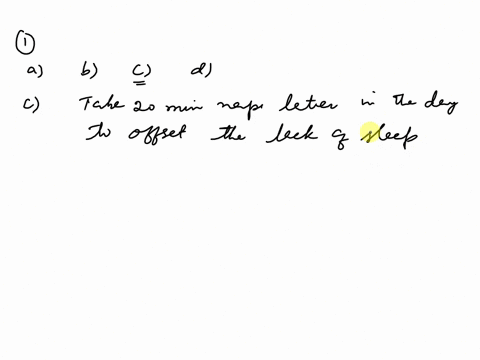 ①
a) b) c) d)
c) Take 20 min naps later in the day
to offset the lack of sleep